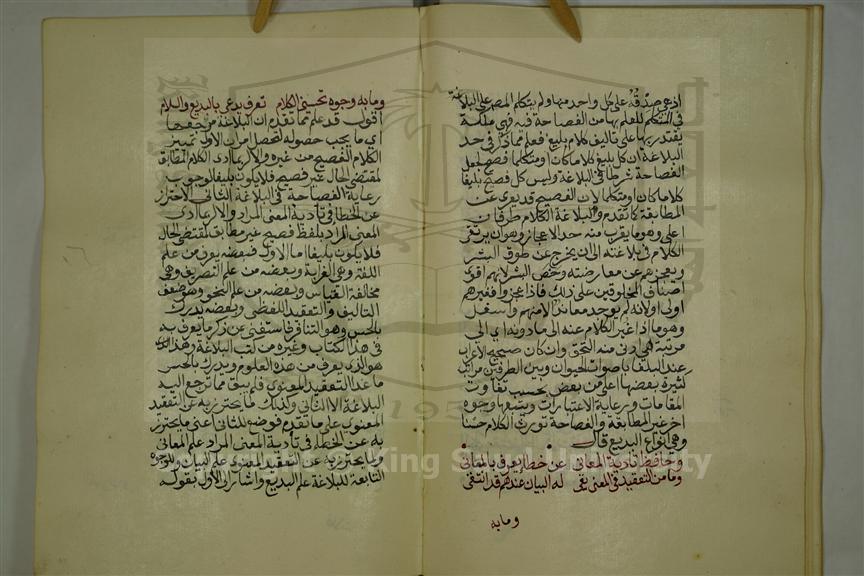 اذ عى صدقه على كل واحد منها ولم يتكلم المص على البلاغة
في المتكلم للعلم بها من الفصاحة فيه فهي ملكة
يقتدر بها على تاليف كلام بليغ فعلم مما ذكر في حد
البلاغة ان كل بليغ كلاما كان او متكلما فصيح لجعل
الفصاحة شرطا في البلاغة وليس كل فصيح بليغا
كلاما كان او متكلما لان الفصيح قد يعرى عن
المطابقة كما تقدم و لبلاغة الكلام طرفان
اعلى وهو ما يقرب منه حد الاعجاز وهو ان يرتقى
الكلام في بلاغته الى ان يخرج عن طوق البشر
ويعجزهم عن معارضته وخص البشر لانهم اقوى
اصناف المخلوقين على ذلك فاذا عجزوا فغيرهم
اولى اولانه لم يوجد معاند الا منهم واسفل
وهو ما اذا غير الكلام عنه الى ما دونه اي الى
مرتبة هي ادنى منه التحق وان كان صحيح الاعراب
عند البلغا باصوات الحيوان وبين الطرفين مراتب
كثيرة بعضها اعلى من بعض بحسب تفاوت
المقامات ورعاية الاعتبارات ويتبعها وجوه
اخر غير المطابقة والفصاحة تورث الكلام حسنا
وهي انواع البديع قال
وحافظ تادية المعاني عن خطا يعرف بالمعاني
وما من التعقيد في المعنى يقي له البيان عندهم قد انتقى
وما به
وما به وجوه تحسين الكلام تعرف يدعى بالبديع والسلام
اقول قد علم مما تقدم ان البلاغة مرجعها
اي ما يجب حصوله لتحصل امران الاول تمييز
الكلام الفصيح من غيره والا لربما ادى الكلام المطابق
لمقتضى الحال غير فصيح فلا يكون بليغا لوجوب
رعاية الفصاحة في البلاغة الثاني الاحتراز
عن الخطا في تادية المعنى المراد والا لربما ادى
المعنى المراد بلفظ فصيح غير مطابق لمقتضى الحال
فلا يكون بليغا اما الاول فبعضه يعرف من علم
اللغة وهي الغرابة وبعضه من علم التصريف وهي
مخالفة القياس وبعضه من علم النحو وهو ضعف
التاليف والتعقيد اللفظي وبعضه يدرك
بالحس وهو التنافر فاستغنى عن ذكر ما يعرف به
في هذا الكتاب وغيره من كتب البلاغة وهذا
هو الذي يعرف من هذه العلوم ويدرك بالحس
ما عدا التعقيد المعنوي فلم يبق مما ترجع اليه
البلاغة الا الثاني وكذلك ما يحترز به عن التعقيد
المعنوي على ما تقدم فوضع للثاني اعني ما يحترز
به عن الخطا في تادية المعنى المراد علم المعاني
ولما يحترز به عن التعقيد المعنوي علم البيان وللوجوه
التابعة للبلاغة علم البديع واشار الى الاول بقوله
King Saud University